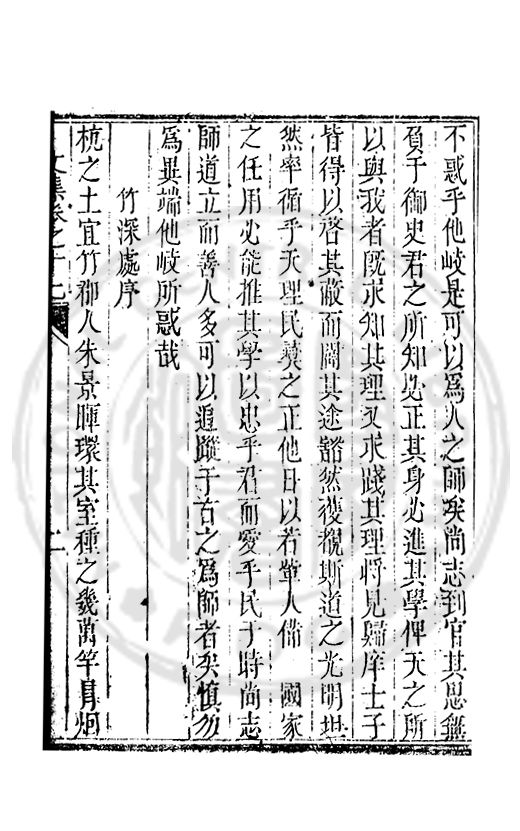 不惑乎他岐是可以爲人之師矣尚志到官其思無
負于御史君之所知必正其身必進其學俾天之所
以與我者旣求知其理又求踐其理將見歸庠士子
皆得以啓其蔽而闢其途豁然獲覩斯道之光明坦
然率循乎天理民彞之正他日以若輩人備 國家
之任用必能推其學以忠乎君而愛乎民于時尚志
師道立而善人多可以追蹤于古之爲師者矣愼勿
爲異端他岐所惑哉
竹深處序
杭之土宜竹郡人朱景暉環其室種之幾萬竿
文集卷之十七
二